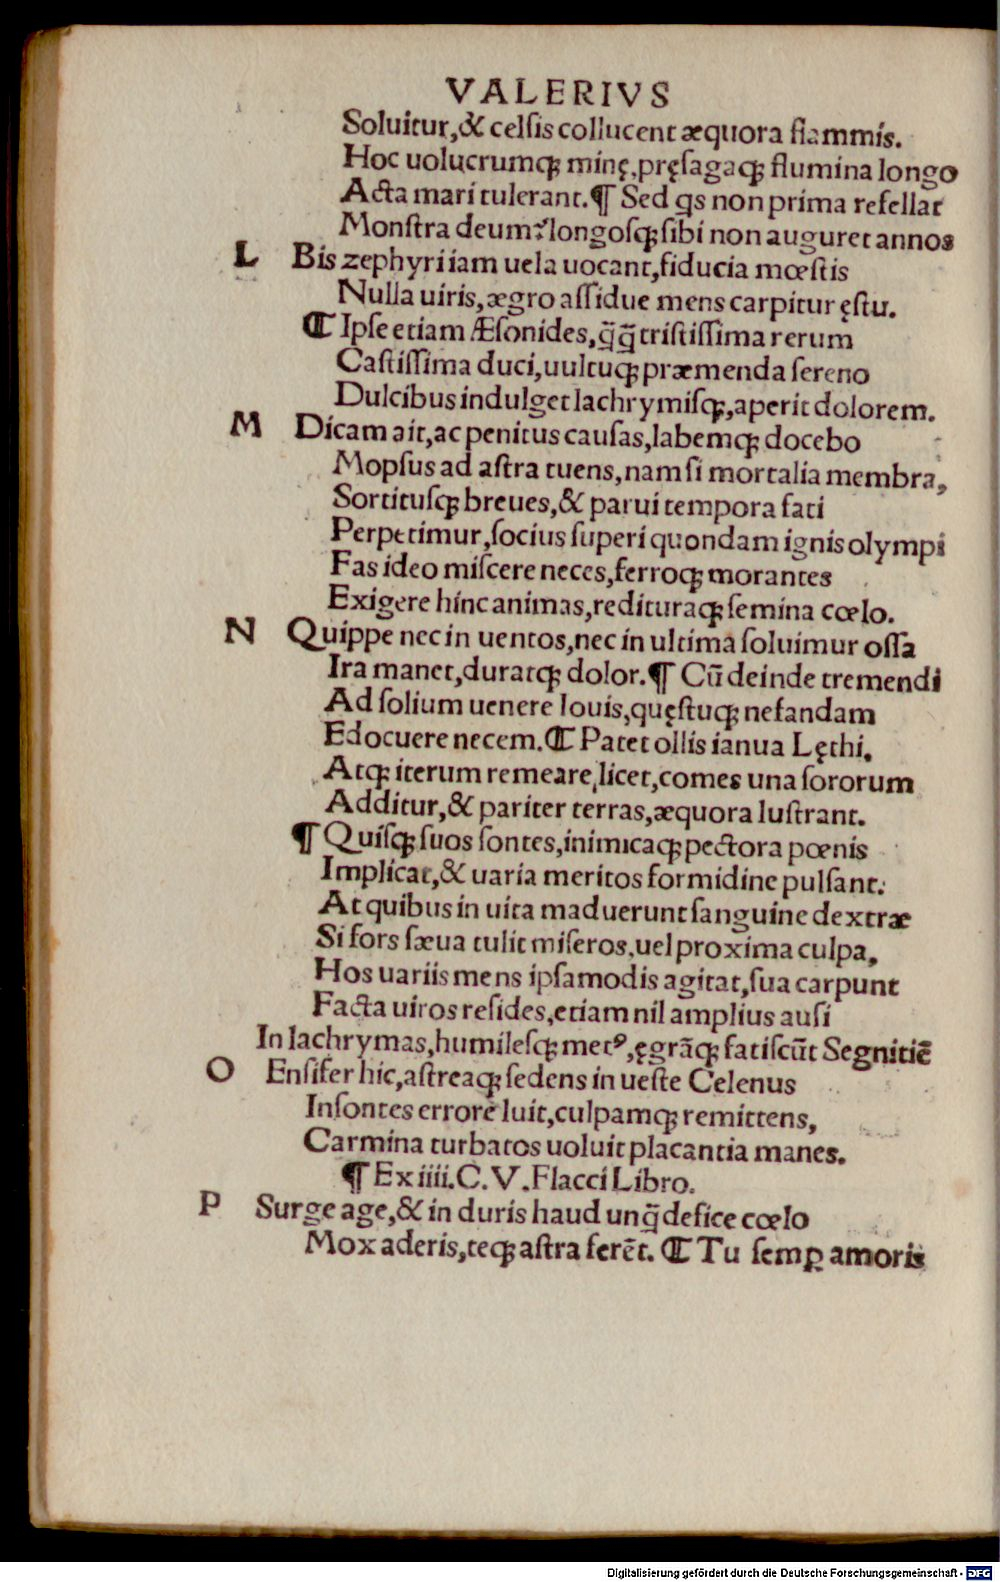 VALERIVS
Soluitur,& celsis collucent æquora flammis.
Hoc uolucrumqꝫ minę,pręsagaqꝫ flumina longo
Acta mari tulerant.¶ Sed qs non prima refellat
Monstra deum? longosqꝫ sibi non auguret annos
L Bis zephyri iam uela uocant,fiducia mœstis
Nulla uiris,ægro assidue mens carpitur ęstu.
¶ Ipse etiam Æsonides,q̃q̃ tristissima rerum
Castissima duci,uultuqꝫ præmenda sereno
Dulcibus indulget lachrymisqꝫ,aperit dolorem.
M Dicam ait,ac penitus causas,labemqꝫ docebo
Mopsus ad astra tuens,nam si mortalia membra,
Sortitusqꝫ breues,& parui tempora fati
Perpetimur,socius superi quondam ignis olympi
Fas ideo miscere neces,ferroqꝫ morantes
Exigere hinc animas,redituraqꝫ semina cœlo.
N Quippe nec in uentos,nec in ultima soluimur ossa
Ira manet,duratqꝫ dolor.¶ Cũ deinde tremendi
Ad solium uenere Iouis,quęstuqꝫ nefandam
Edocuere necem.¶ Patet ollis ianua Lęthi.
Atqꝫ iterum remeare licet,comes una sororum
Additur,& pariter terras,æquora lustrant.
¶ Quisqꝫ suos sontes,inimicaqꝫ pectora pœnis
Implicat,& uaria meritos formidine pulsant.
At quibus in uita maduerunt sanguine dextræ
Si fors sæua tulit miseros,uel proxima culpa,
Hos uariis mens ipsa modis agitat,sua carpunt
Facta uiros resides,etiam nil amplius ausi
In lachrymas,humilesqꝫ metꝰ,ęgrãqꝫ fatiscũt Segnitiẽ
O Ensifer hic,astreaqꝫ sedens in ueste Celenus
Insontes errore luit,culpamqꝫ remittens,
Carmina turbatos uoluit placantia manes.
¶ Ex iiii.C.V.Flacci Libro.
P Surge age,& in duris haud unq̃ defice cœlo
Mox aderis,teqꝫ astra ferẽt. ¶ Tu semꝑ amoris
Digitalisierung gefördert durch die Deutsche Forschungsgemeinschaft - DFG